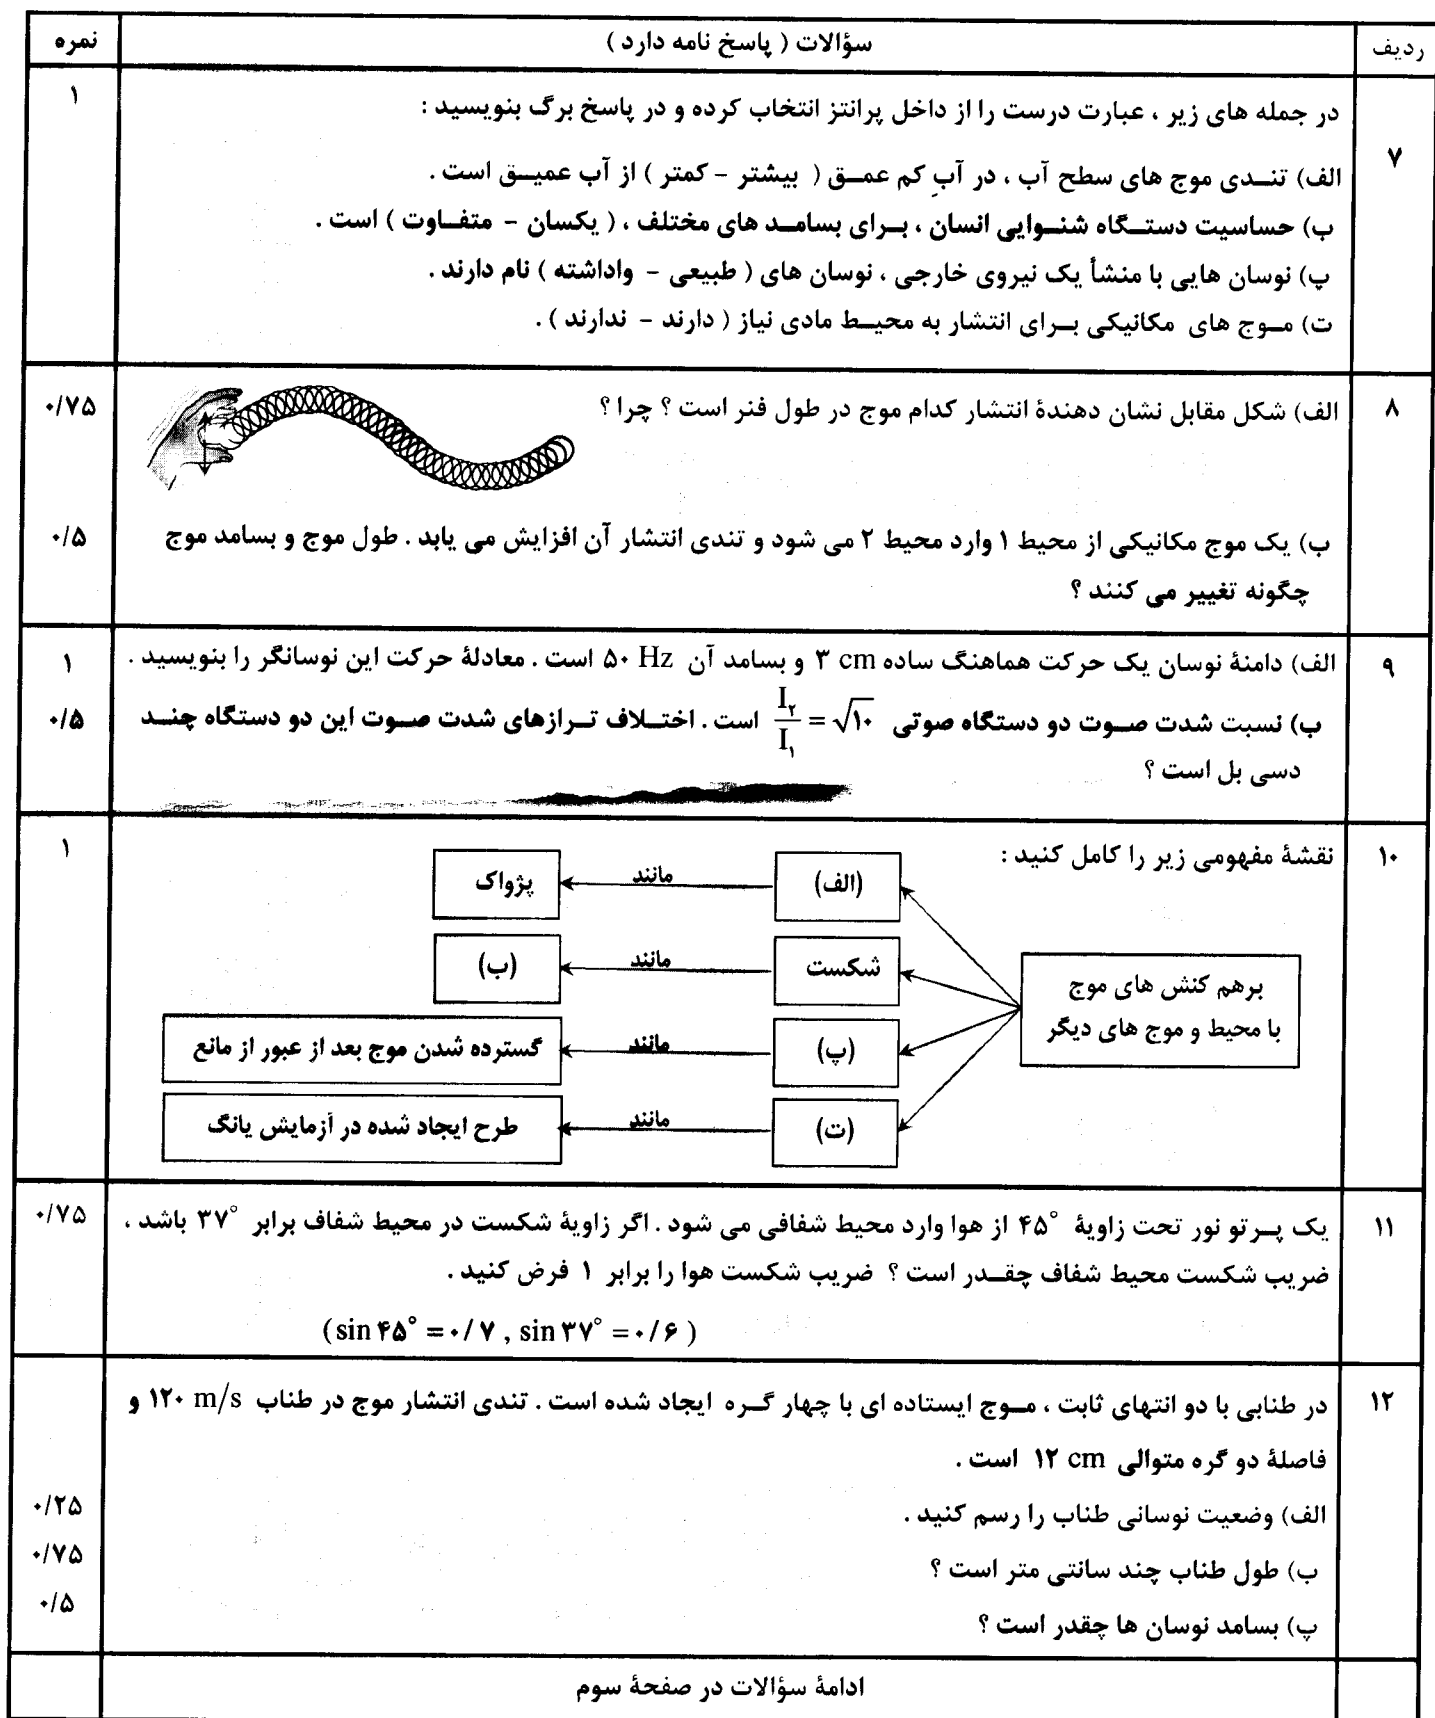 ردیف سؤالات ( پاسخ نامه دارد ) نمره
۷ در جمله های زیر ، عبارت درست را از داخل پرانتز انتخاب کرده و در پاسخ برگ بنویسید : ۱
الف) تنـدی موج های سطح آب ، در آبِ کم عمـق ( بیشتر - کمتر ) از آب عمیـق است .
ب) حساسیت دستـگاه شنـوایی انسان ، بـرای بسامـد های مختلف ، ( یکسان - متفـاوت ) است .
پ) نوسان هایی با منشأ یک نیروی خارجی ، نوسان های ( طبیعی - واداشته ) نام دارند .
ت) مـوج های مکانیکی بـرای انتشار به محیـط مادی نیاز ( دارند - ندارند ) .
۸ الف) شکل مقابل نشان دهندهٔ انتشار کدام موج در طول فنر است ؟ چرا ؟ ۰/۷۵
ب) یک موج مکانیکی از محیط ۱ وارد محیط ۲ می شود و تندی انتشار آن افزایش می یابد . طول موج و بسامد موج ۰/۵
چگونه تغییر می کنند ؟
۹ الف) دامنهٔ نوسان یک حرکت هماهنگ ساده ۳ cm و بسامد آن ۵۰ Hz است . معادلهٔ حرکت این نوسانگر را بنویسید . ۱
ب) نسبت شدت صـوت دو دستگاه صوتی I₂/I₁ = √۱۰ است . اختـلاف تـرازهای شدت صـوت این دو دستگاه چنـد ۰/۵
دسی بل است ؟
۱۰ نقشهٔ مفهومی زیر را کامل کنید : ۱
برهم کنش های موج
با محیط و موج های دیگر
(الف) مانند پژواک
شکست مانند (ب)
(پ) مانند گسترده شدن موج بعد از عبور از مانع
(ت) مانند طرح ایجاد شده در آزمایش یانگ
۱۱ یک پـرتو نور تحت زاویهٔ ۴۵° از هوا وارد محیط شفافی می شود . اگر زاویهٔ شکست در محیط شفاف برابر ۳۷° باشد ، ۰/۷۵
ضریب شکست محیط شفاف چقـدر است ؟ ضریب شکست هوا را برابر ۱ فرض کنید .
(sin ۴۵° = ۰/۷ , sin ۳۷° = ۰/۶ )
۱۲ در طنابی با دو انتهای ثابت ، مـوج ایستاده ای با چهار گـره ایجاد شده است . تندی انتشار موج در طناب ۱۲۰ m/s و
فاصلهٔ دو گره متوالی ۱۲ cm است .
الف) وضعیت نوسانی طناب را رسم کنید . ۰/۲۵
ب) طول طناب چند سانتی متر است ؟ ۰/۷۵
پ) بسامد نوسان ها چقدر است ؟ ۰/۵
ادامهٔ سؤالات در صفحهٔ سوم